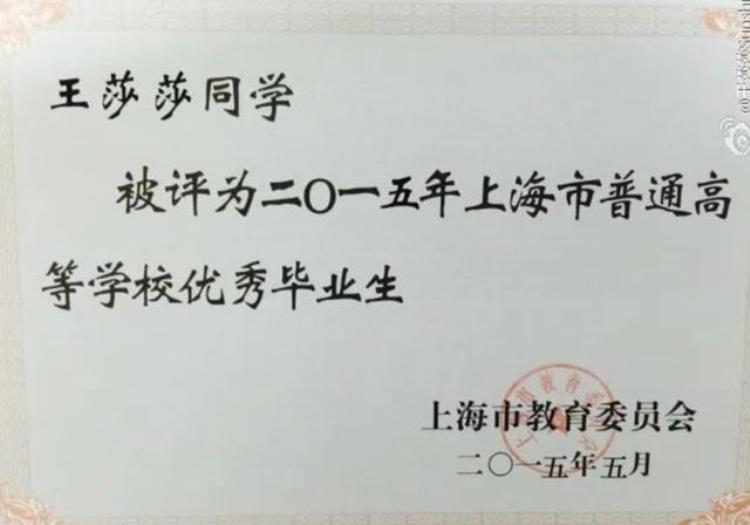 王莎莎同学
被评为二〇一五年上海市普通高
等学校优秀毕业生
上海市教育委员会
二〇一五年五月
上海市教育委员会